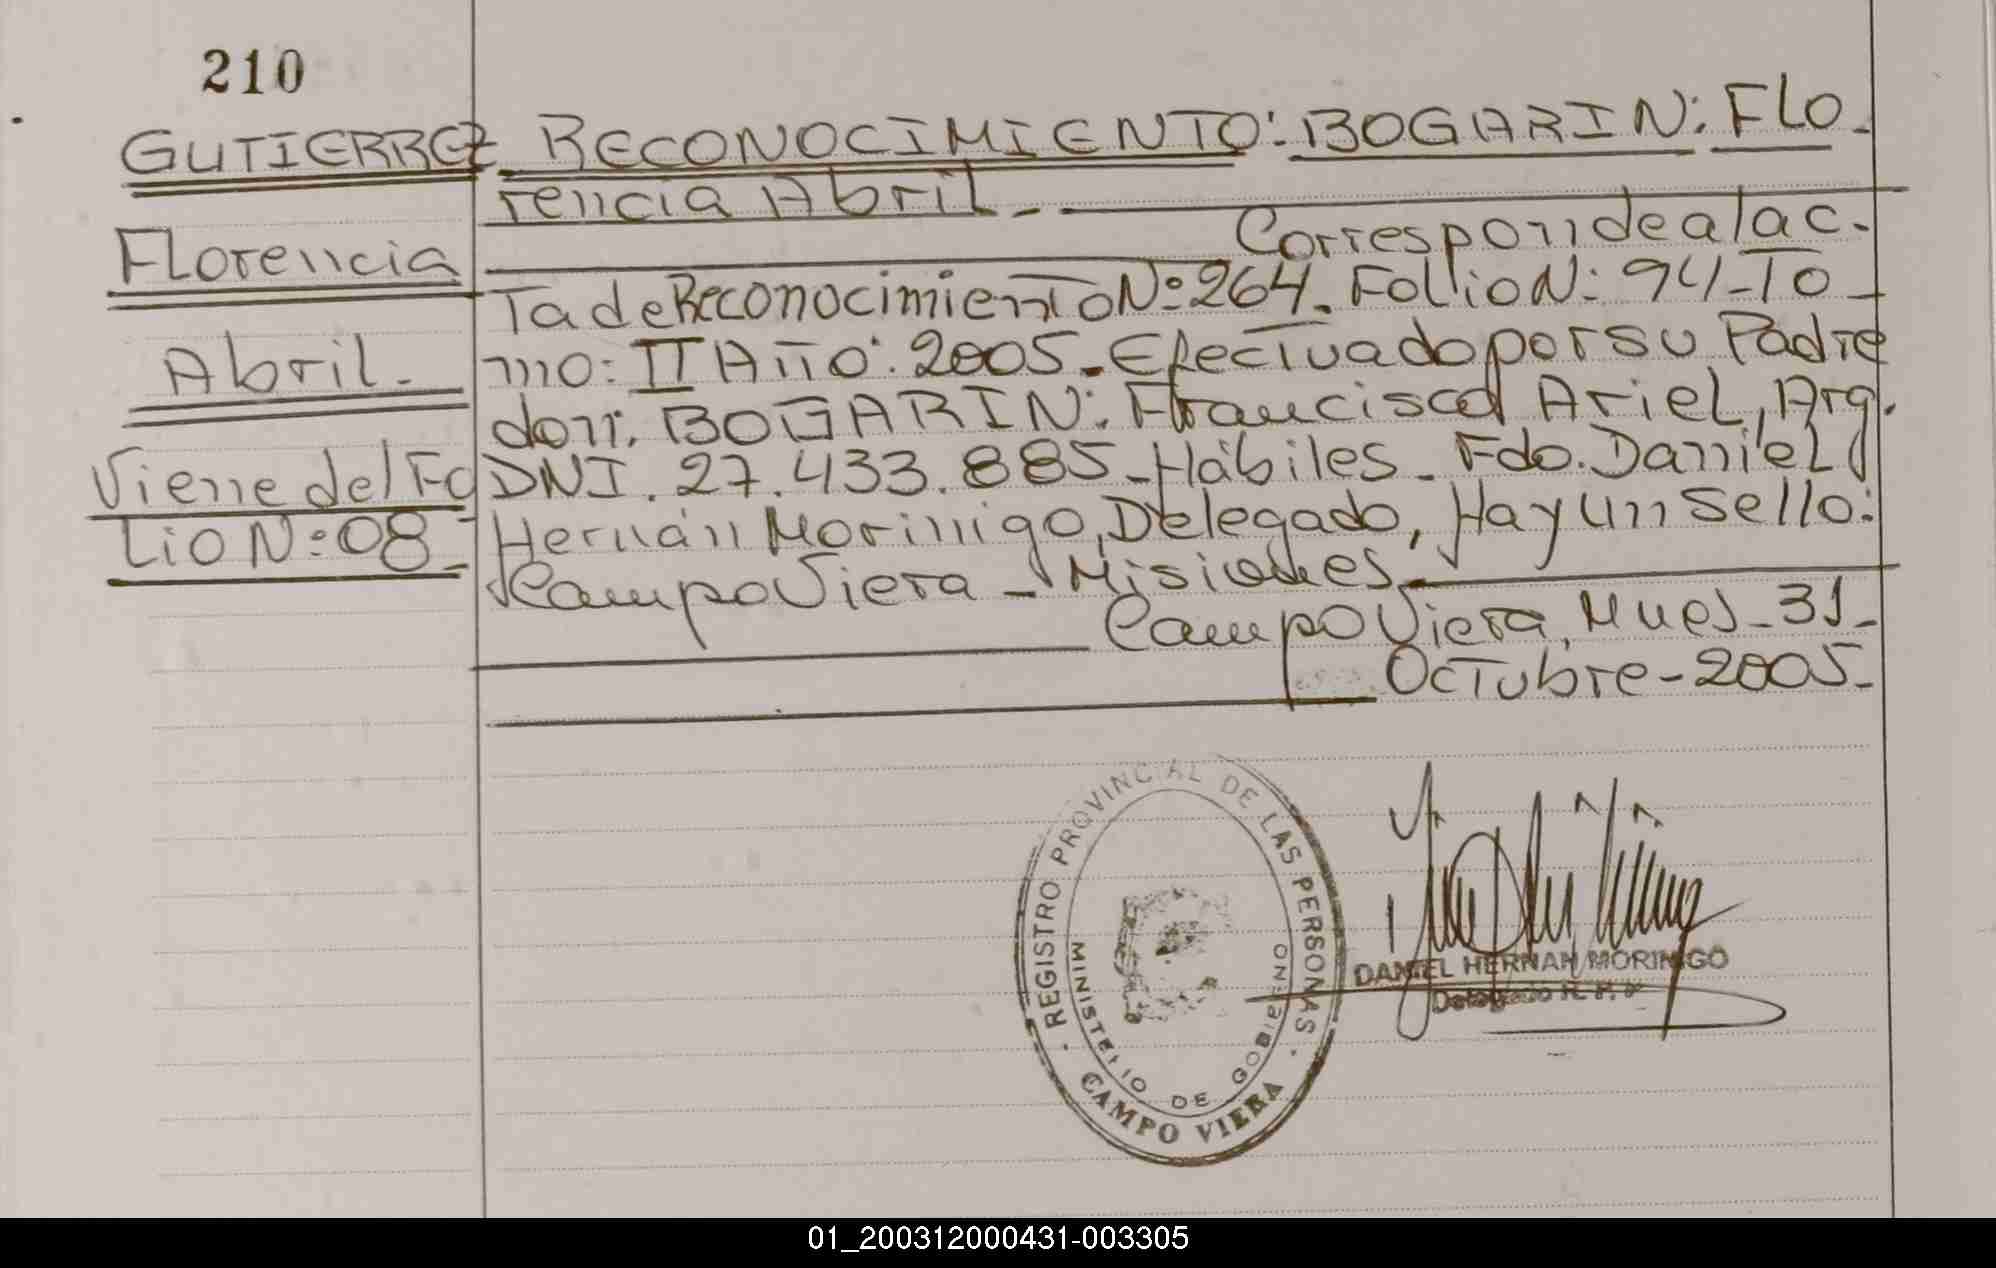 210
GUTIERREZ
Florencia
Abril.-
Viene del Fo
Lio N:08-
RECONOCIMIENTO: BOGARIN: FLO-
rencia Abril.-
Corresponde al ac-
Ta de Reconocimiento Nº 264. Folio N: 94-To-
mo: II Año: 2005. Efectuado por su Padre
don: BOGARIN: Francisco Ariel, Arg.
DNI. 27.433.885-Hábiles- Fdo. Daniel
Hernán Morinigo, Delegado, Hay un Sello:
Campo Viera - Misiones-
Campo Viera, Mues- 31-
Octubre-2005.-
REGISTRO PROVINCIAL DE LAS PERSONAS
MINISTERIO DE GOBIERNO
CAMPO VIERA
DANIEL HERNAN MORINIGO
Delegado R. P. P
01_200312000431-003305